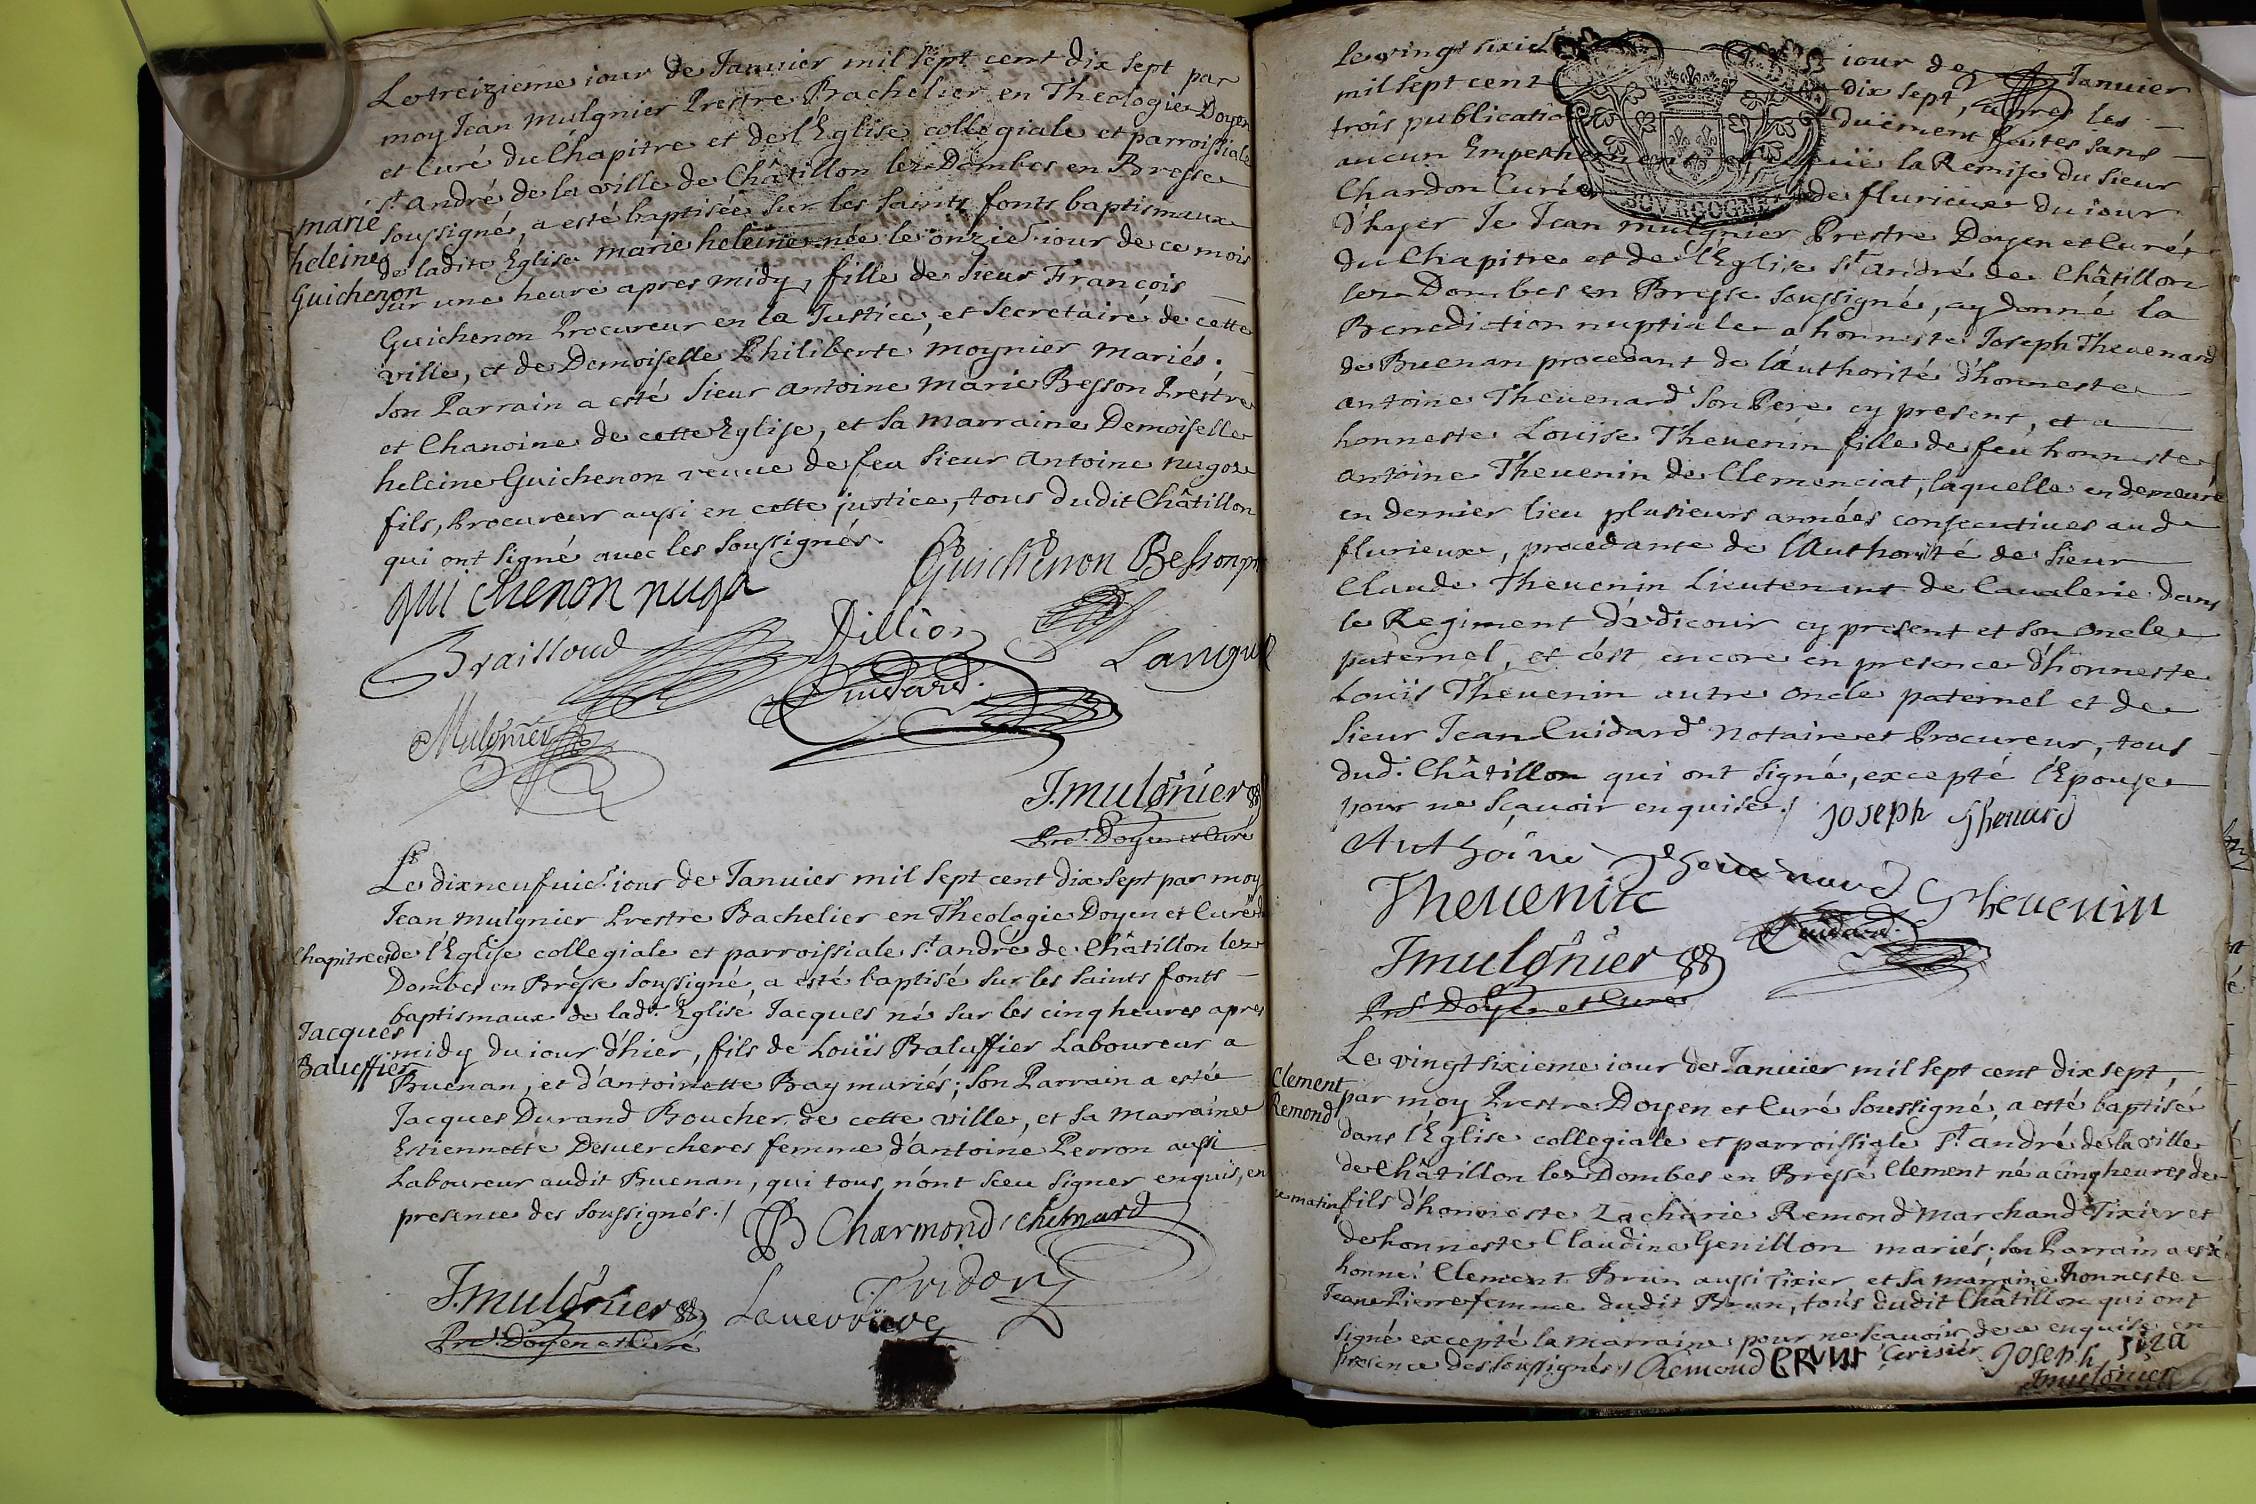 Le treizieme iour de Ianuier mil sept cent dix sept par
moy Iean mulgnier Prestre Bachelier en Theologie Doyen
et Curé du Chapitre et de l'Eglise collegiale et parroissiale
st. andré de la ville de Châtillon lez Dombes en Bresse
soussigné, a esté baptisée sur les saints fonts baptismaux
marie
heleine
Guichenon
de ladite Eglise marie heleine née le onzie. iour de ce mois
sur une heure apres midy, fille de sieur François
Guichenon Procureur en la Justice, et secretaire de cette
ville, et de Demoiselle Philiberte moynier mariés;
son Parrain a esté sieur antoine marie Besson Prestre
et Chanoine de cette Eglise, et sa marraine Demoiselle
heleine Guichenon veuue de feu sieur antoine nugoz
fils, Procureur aussi en cette justice, tous dudit Châtillon
qui ont signé auec les soussignés.
Guichenon Besson ptre
qui chenon nuga
Brailloud Dillion
Languet
Cuidard.
Mulgnier
J. mulgnier
Pre. Doyen et Curé
Le dixneufuie. iour de Ianuier mil sept cent dix sept par moy
Iean mulgnier Prestre Bachelier en Theologie Doyen et Curé du
Chapitre et de l'Eglise collegiale et parroissiale st. andré de Châtillon lez
Dombes en Bresse soussigné, a esté baptisé sur les saints fonts
baptismaux de lade. Eglise Iacques né sur les cinq heures apres
Iacques
Baluffier
midy du iour d'hier, fils de Louïs Baluffier Laboureur a
Buenan, et d'antoinette Bay mariés; son Parrain a esté
Iacques Durand Boucher de cette ville, et sa marraine
Estiennette Desuercheres femme d'antoine Perron aussi
Laboureur audit Buenan, qui tous n'ont sceu signer enquis, en
presence des soussignés./
Charmond chenard
J. mulgnier Lauerriere Tridon
Pre. Doyen et Curé
Le vingt sixie. iour de Ianuier
mil sept cent dix sept, apres les
trois publications duëment faites sans
aucun Empeschement la Remise du sieur
Chardon Curé de flurieux du iour
d'hyer Ie Iean mulgnier Prestre Doyen et Curé
du Chapitre et de l'Eglise st. andré de Châtillon
lez Dombes en Bresse soussigné, ay donné la
Benediction nuptiale a honneste Ioseph Theuenard
de Buenan procedant de l'authorité d'honneste
antoine Theuenard son Pere cy present, et a
honneste Louïse Theuenin fille de feu honneste
antoine Theuenin de Clemenciat, laquelle en demeuré
en dernier lieu plusieurs années consecutiues aud.
flurieux, procedante de l'Authorité de sieur
Claude Theuenin Lieutenant de Caualerie dans
le Regiment cy present et son oncle
paternel, et c'est encore en presence d'honneste
Louïs Theuenin autre oncle paternel et de
sieur Iean Cuidard Notaire et Procureur, tous
dud. Châtillon qui ont signé, excepté l'Epouse
pour ne sçauoir enquise./ Joseph Thenard
Anthoine Theuenard
Theuenin Theuenin
Cuidard.
J mulgnier
Pre. Doyen et Curé
Le vingt sixieme iour de Ianuier mil sept cent dix sept,
Clement
Remond
par moy Prestre Doyen et Curé soussigné, a esté baptisé
dans l'Eglise collegiale et parroissiale st. andré de la ville
de Châtillon lez Dombes en Bresse Clement né a cinq heures de
ce matin fils d'honneste Zacharie Remond marchand Tixier et
de honneste Claudine Genillon mariés; son Parrain a esté
honne. Clement Brun aussi Tixier et sa marraine honneste
Ieane Pierre femme dudit Brun, tous dudit Châtillon qui ont
signé excepté la marraine pour ne sçauoir de ce enquise en
presence des soussignés./ Remond BRUN Cerisier Joseph
J mulgnier
BOVRGOGNE